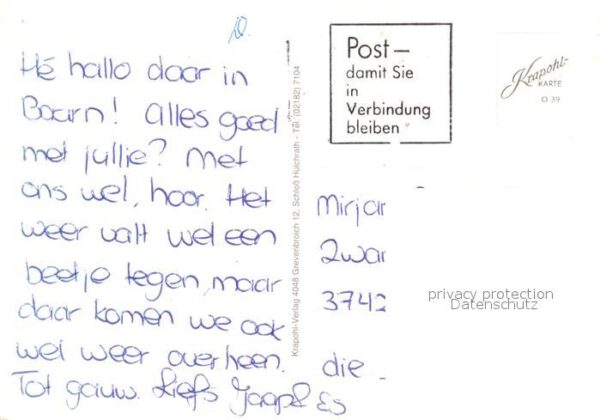 Hé hallo daar in
Baarn! Alles goed
met jullie? Met
ons wel, hoor. Het
weer valt wel een
beetje tegen, maar
daar komen we ook
wel weer overheen.
Tot gauw. Liefs Jaap &
Krapohl-Verlag 4048 Grevenbroich 12, Schloß Hülchrath - Tel. (02182) 7104
Post –
damit Sie
in
Verbindung
bleiben
Krapohl-
KARTE
O 39
Mirjar
Zwar
3742
die
privacy protection
Datenschutz